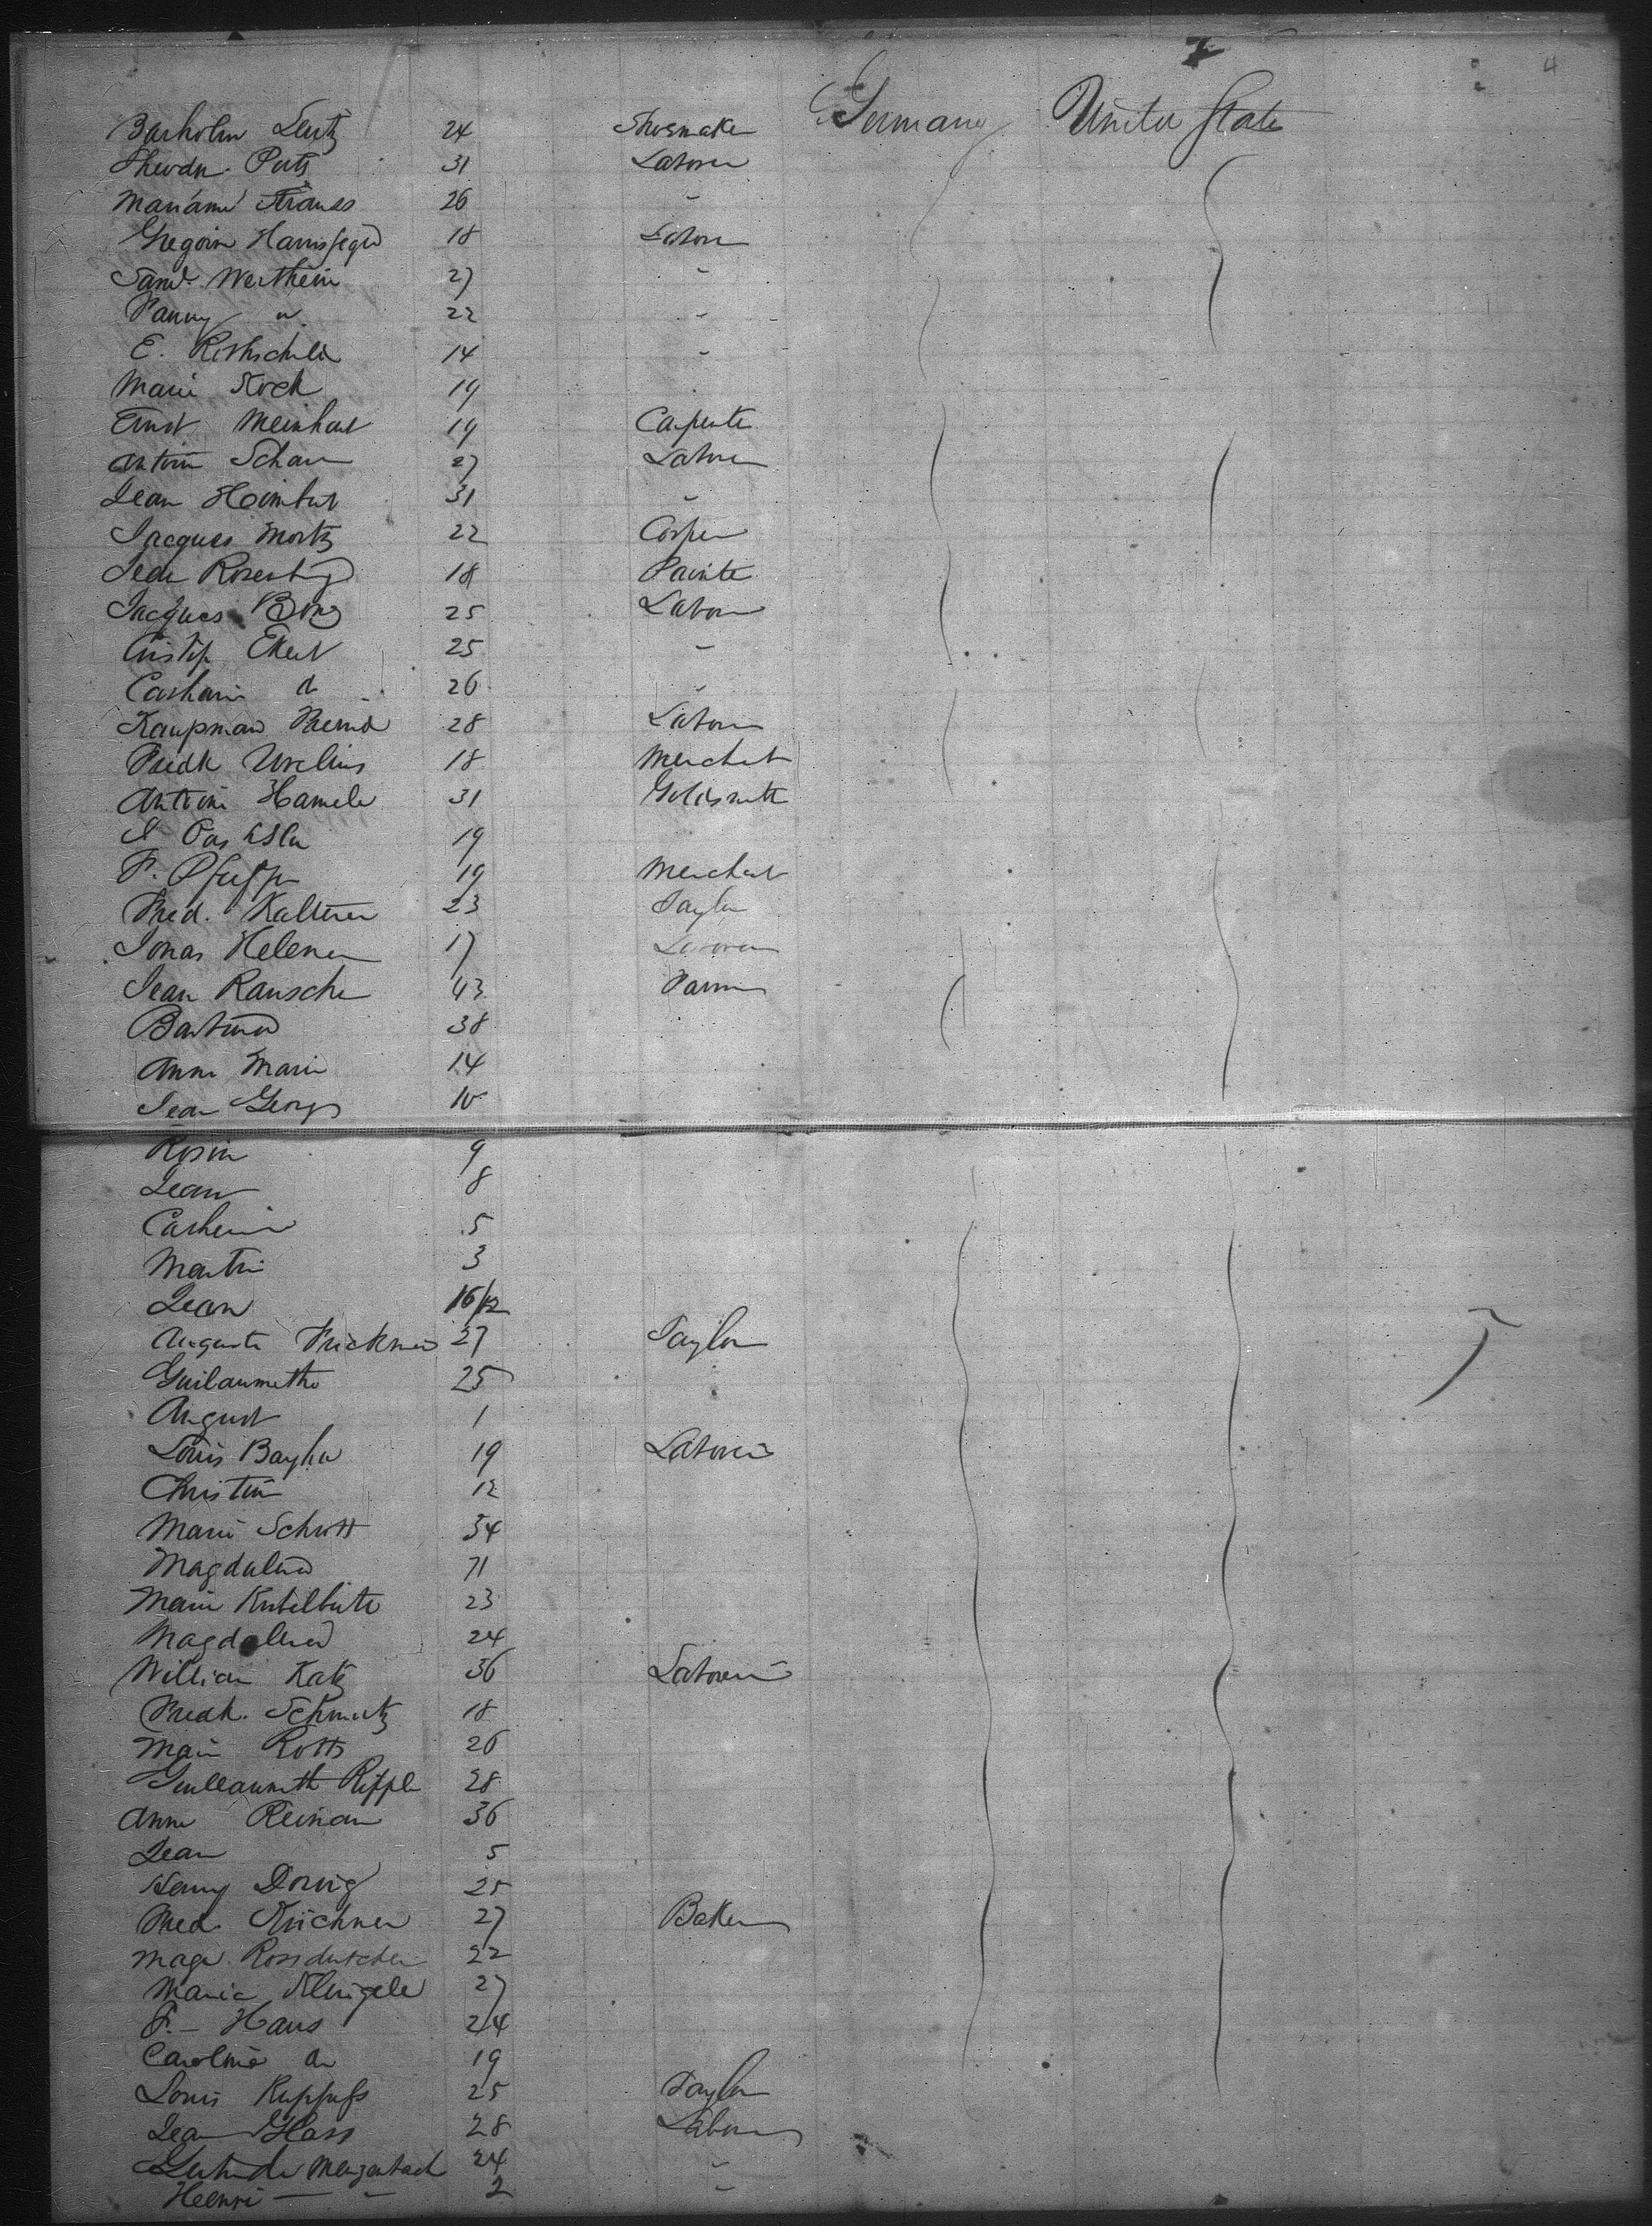 4
Germany United State
Barholm Lentz 24 Shoemaker
Theodr. Puts 31 Laborer
Mariann Strauss 26 "
Gregoire 18 Labore
Saml. Wertheim 27 "
Fanny " 22 "
E. Rothschild 14 "
Marie Koch 19
Ernst Meinhart 19 Carpente
Antoin Schau 27 Laborer
Jean Heimbur 31 "
Jacques Mortz 22 Cooper
Rosenberg 18 Painte
Jacques Bing 25 Labor
Cristof Ekert 25 "
Catharin do 26 "
Kaupman Bernd 28 Labor
Fredk Urelius 18 Merchat
Antoine Hamele 31 Goldsmith
J 19
F. Pfeiffer 19 Merchat
Fred. Kalterer 23 Taylor
Jonas Helener 17 Laborer
Jean Rausche 43 Farmer
Barbara 38
Anne Marie 14
Jean Georg 10
Rosine 9
Jean 8
Catherine 5
Martin 3
Jean 16/12
Auguste Frickner 27 Taylor
Guilaumetho 25
August 1
Louis Bayha 19 Laborer
Christin 12
Marie Schrott 34
Magdalena 71
Marie 23
Magdalena 24
William Katz 36 Laborer
Fredk. Schmutz 18
Marie Rotts 26
Guillaumeth Ripple 28
Anne Reinau 36
Jean 5
Henry Dorvig 25
Fred. Kirchner 27 Baker
Magd. Rossdutscher 22
Maria Klingele 27
F. - Haus 24
Caroline do 19
Louis Ruppufs 25 Taylor
Jean Glass 28 Labour
Gertrude Menzenbach 24 "
Henri — " 2 "